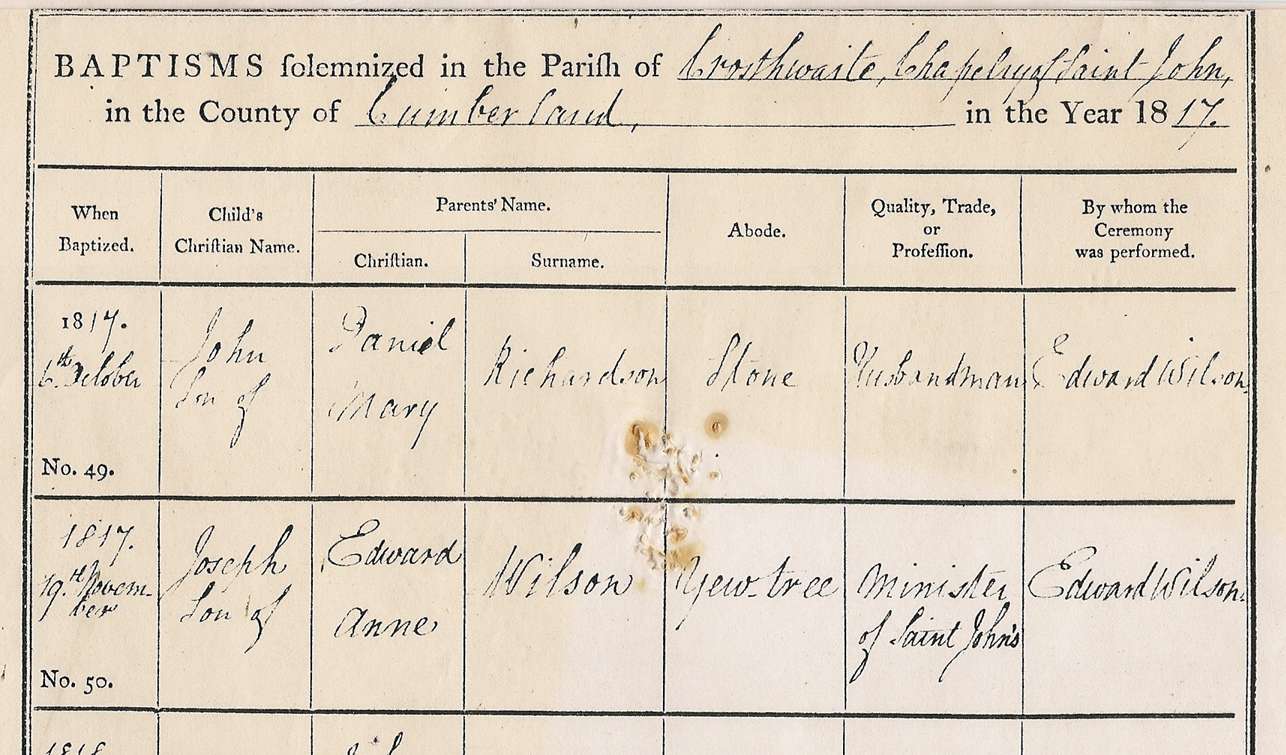 BAPTISMS ſolemnized in the Pariſh of Crosthwaite, Chapelry of Saint John,
in the County of Cumberland, in the Year 1817.
When
Baptized.
Child's
Chriſtian Name.
Parents' Name.
Chriſtian.
Surname.
Abode.
Quality, Trade,
or
Profeſſion.
By whom the
Ceremony
was performed.
1817.
6th October
No. 49.
John
Son of
Daniel
Mary
Richardson
Stone
Husbandman
Edward Wilson.
1817.
19th Novem-
ber
No. 50.
Joseph
Son of
Edward
Anne
Wilson
Yew-tree
Minister
of Saint John's
Edward Wilson.
1818